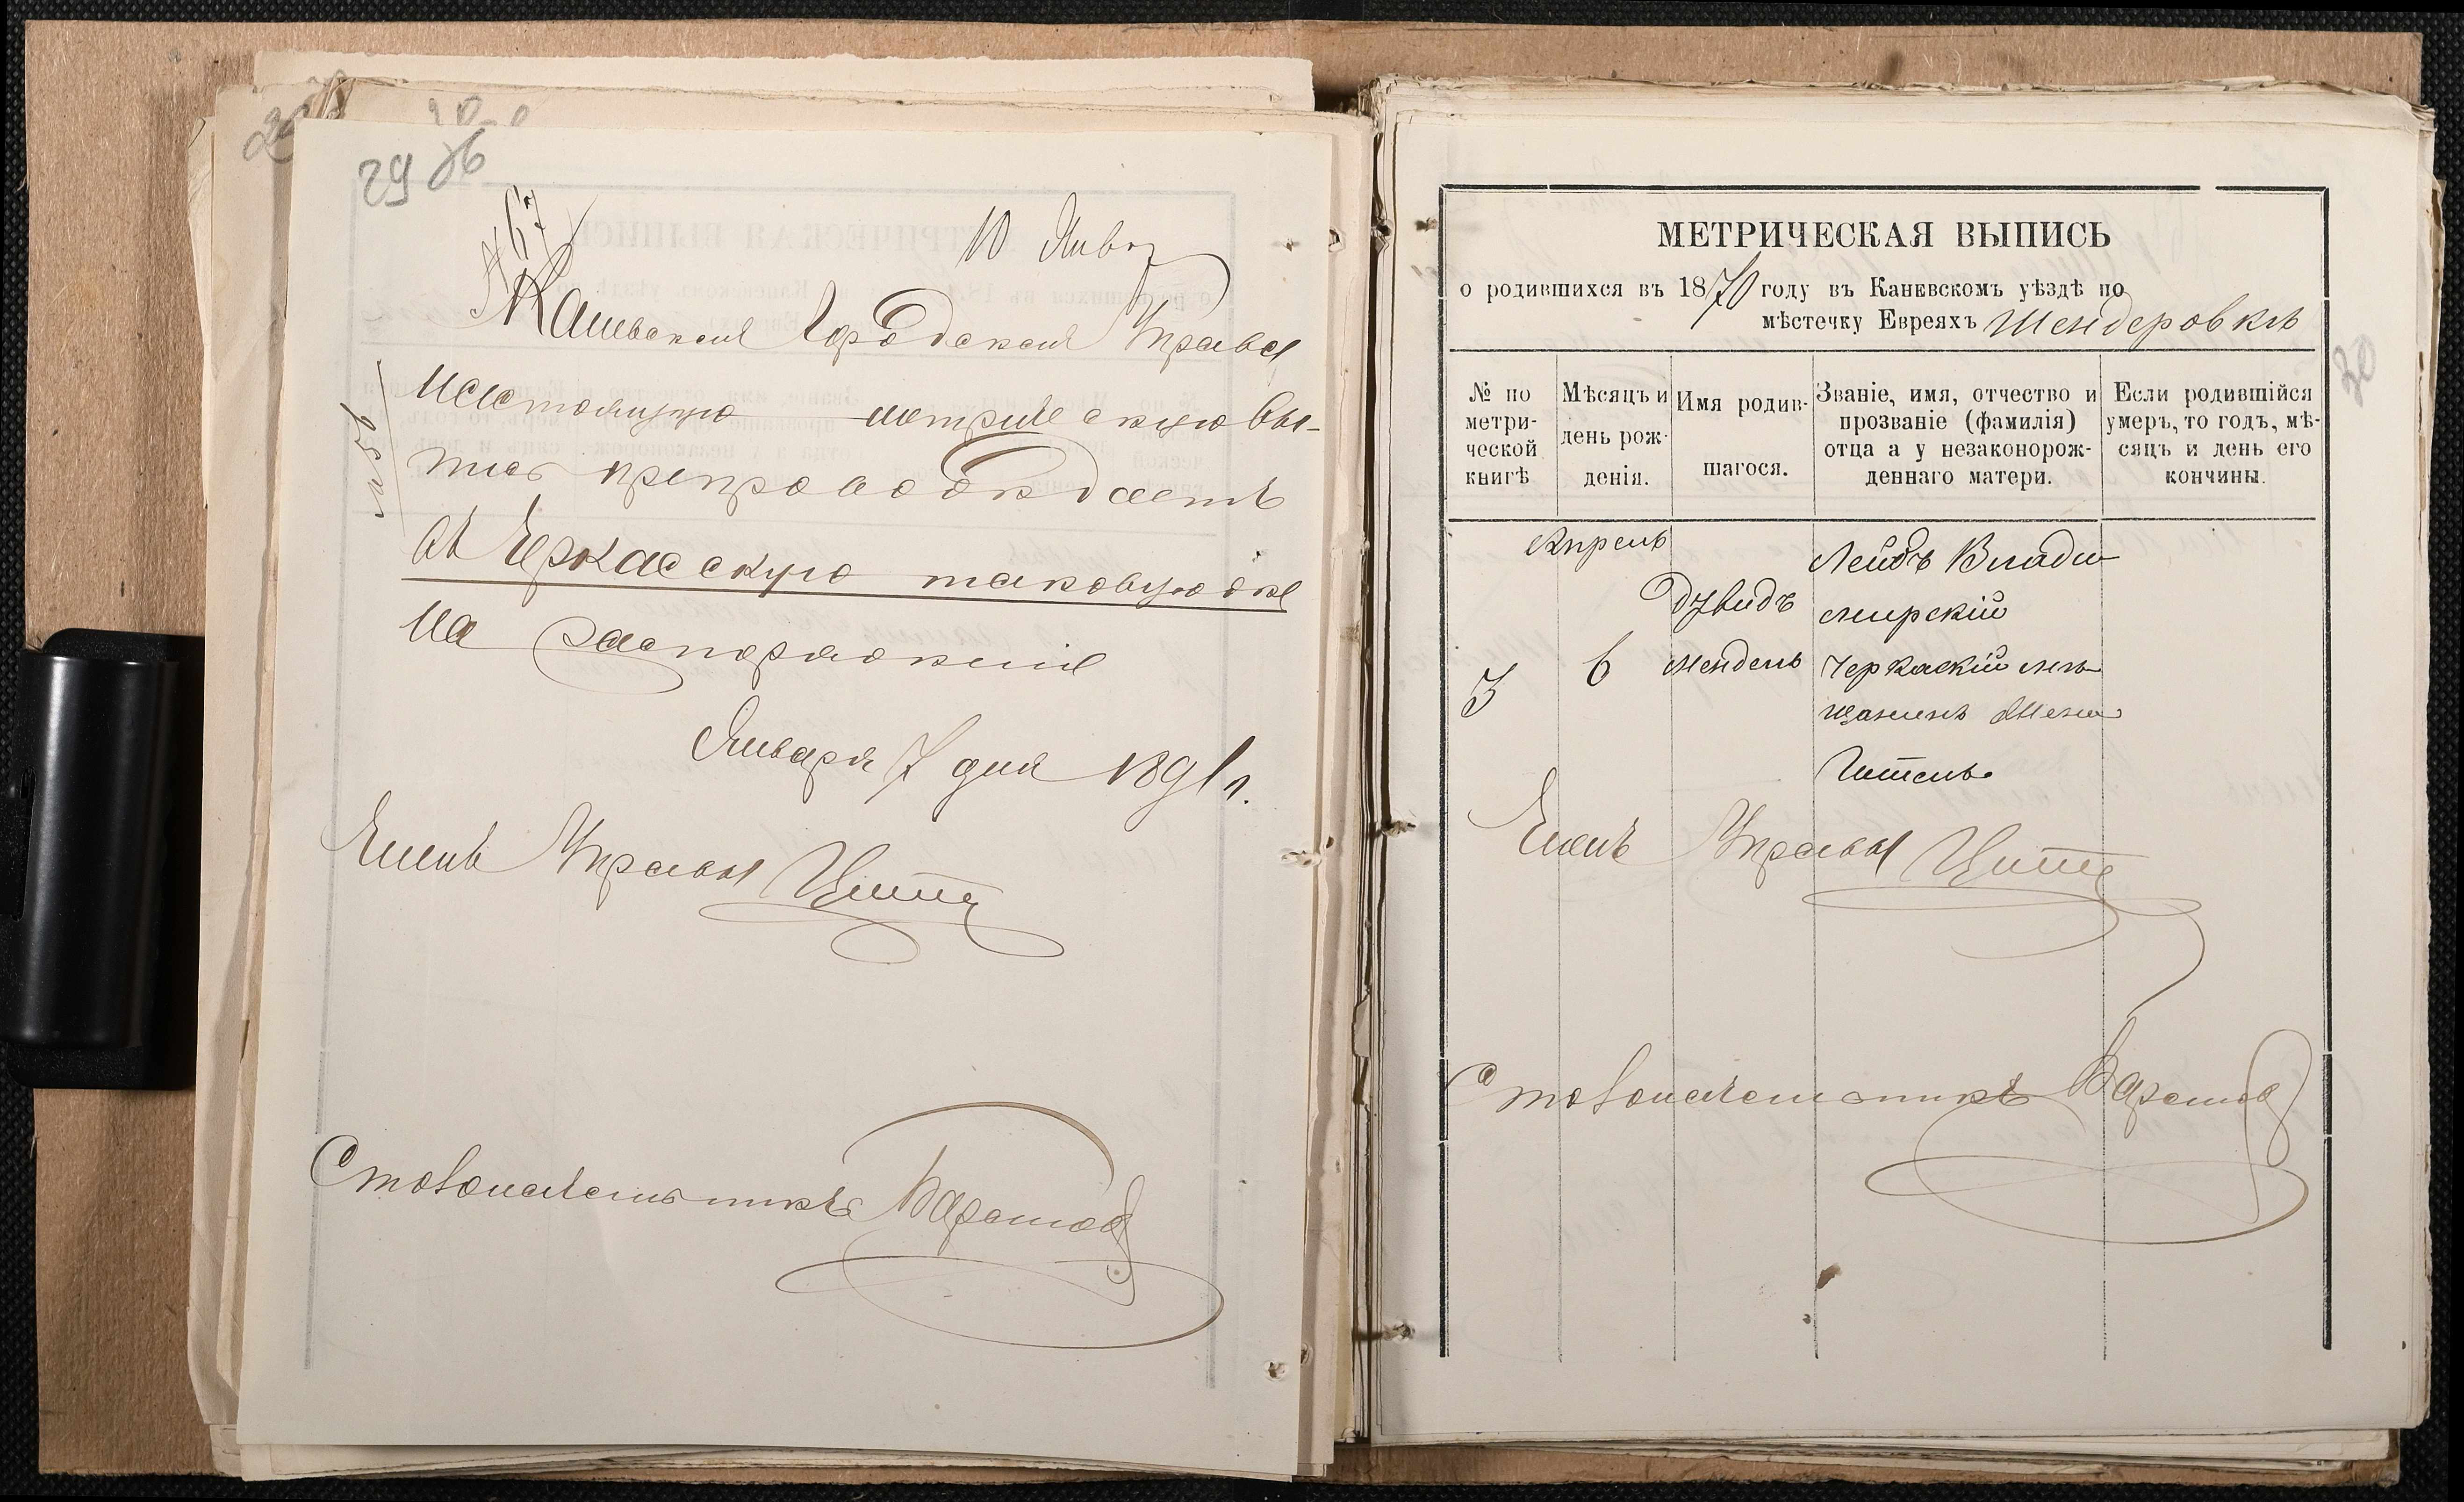 29 об
№ 67
10 Янв
Каневская Городская Управа
настоящую метрическую вы-
пись препровождаетъ
въ Черкасскую таковую же
на распоряженіе
Января 7 дня 1891 г.
Членъ Управы
Столоначальникъ
30
МЕТРИЧЕСКАЯ ВЫПИСЬ
о родившихся въ 1870 году въ Каневскомъ уѣздѣ по
мѣстечку Евреяхъ Шендеровкѣ
№ по метри-ческой книгѣ
Мѣсяцъ и день рож-денія.
Имя родив-шагося.
Званіе, имя, отчество и прозваніе (фамилія) отца а у незаконорож-деннаго матери.
Если родившійся умеръ, то годъ, мѣ-сяцъ и день его кончины.
Апрель
Лейбъ Влади
Дувидъ мирскій
3 6 Мендель Черкаскій мѣ
щанинъ
Членъ Управы
Столоначальникъ